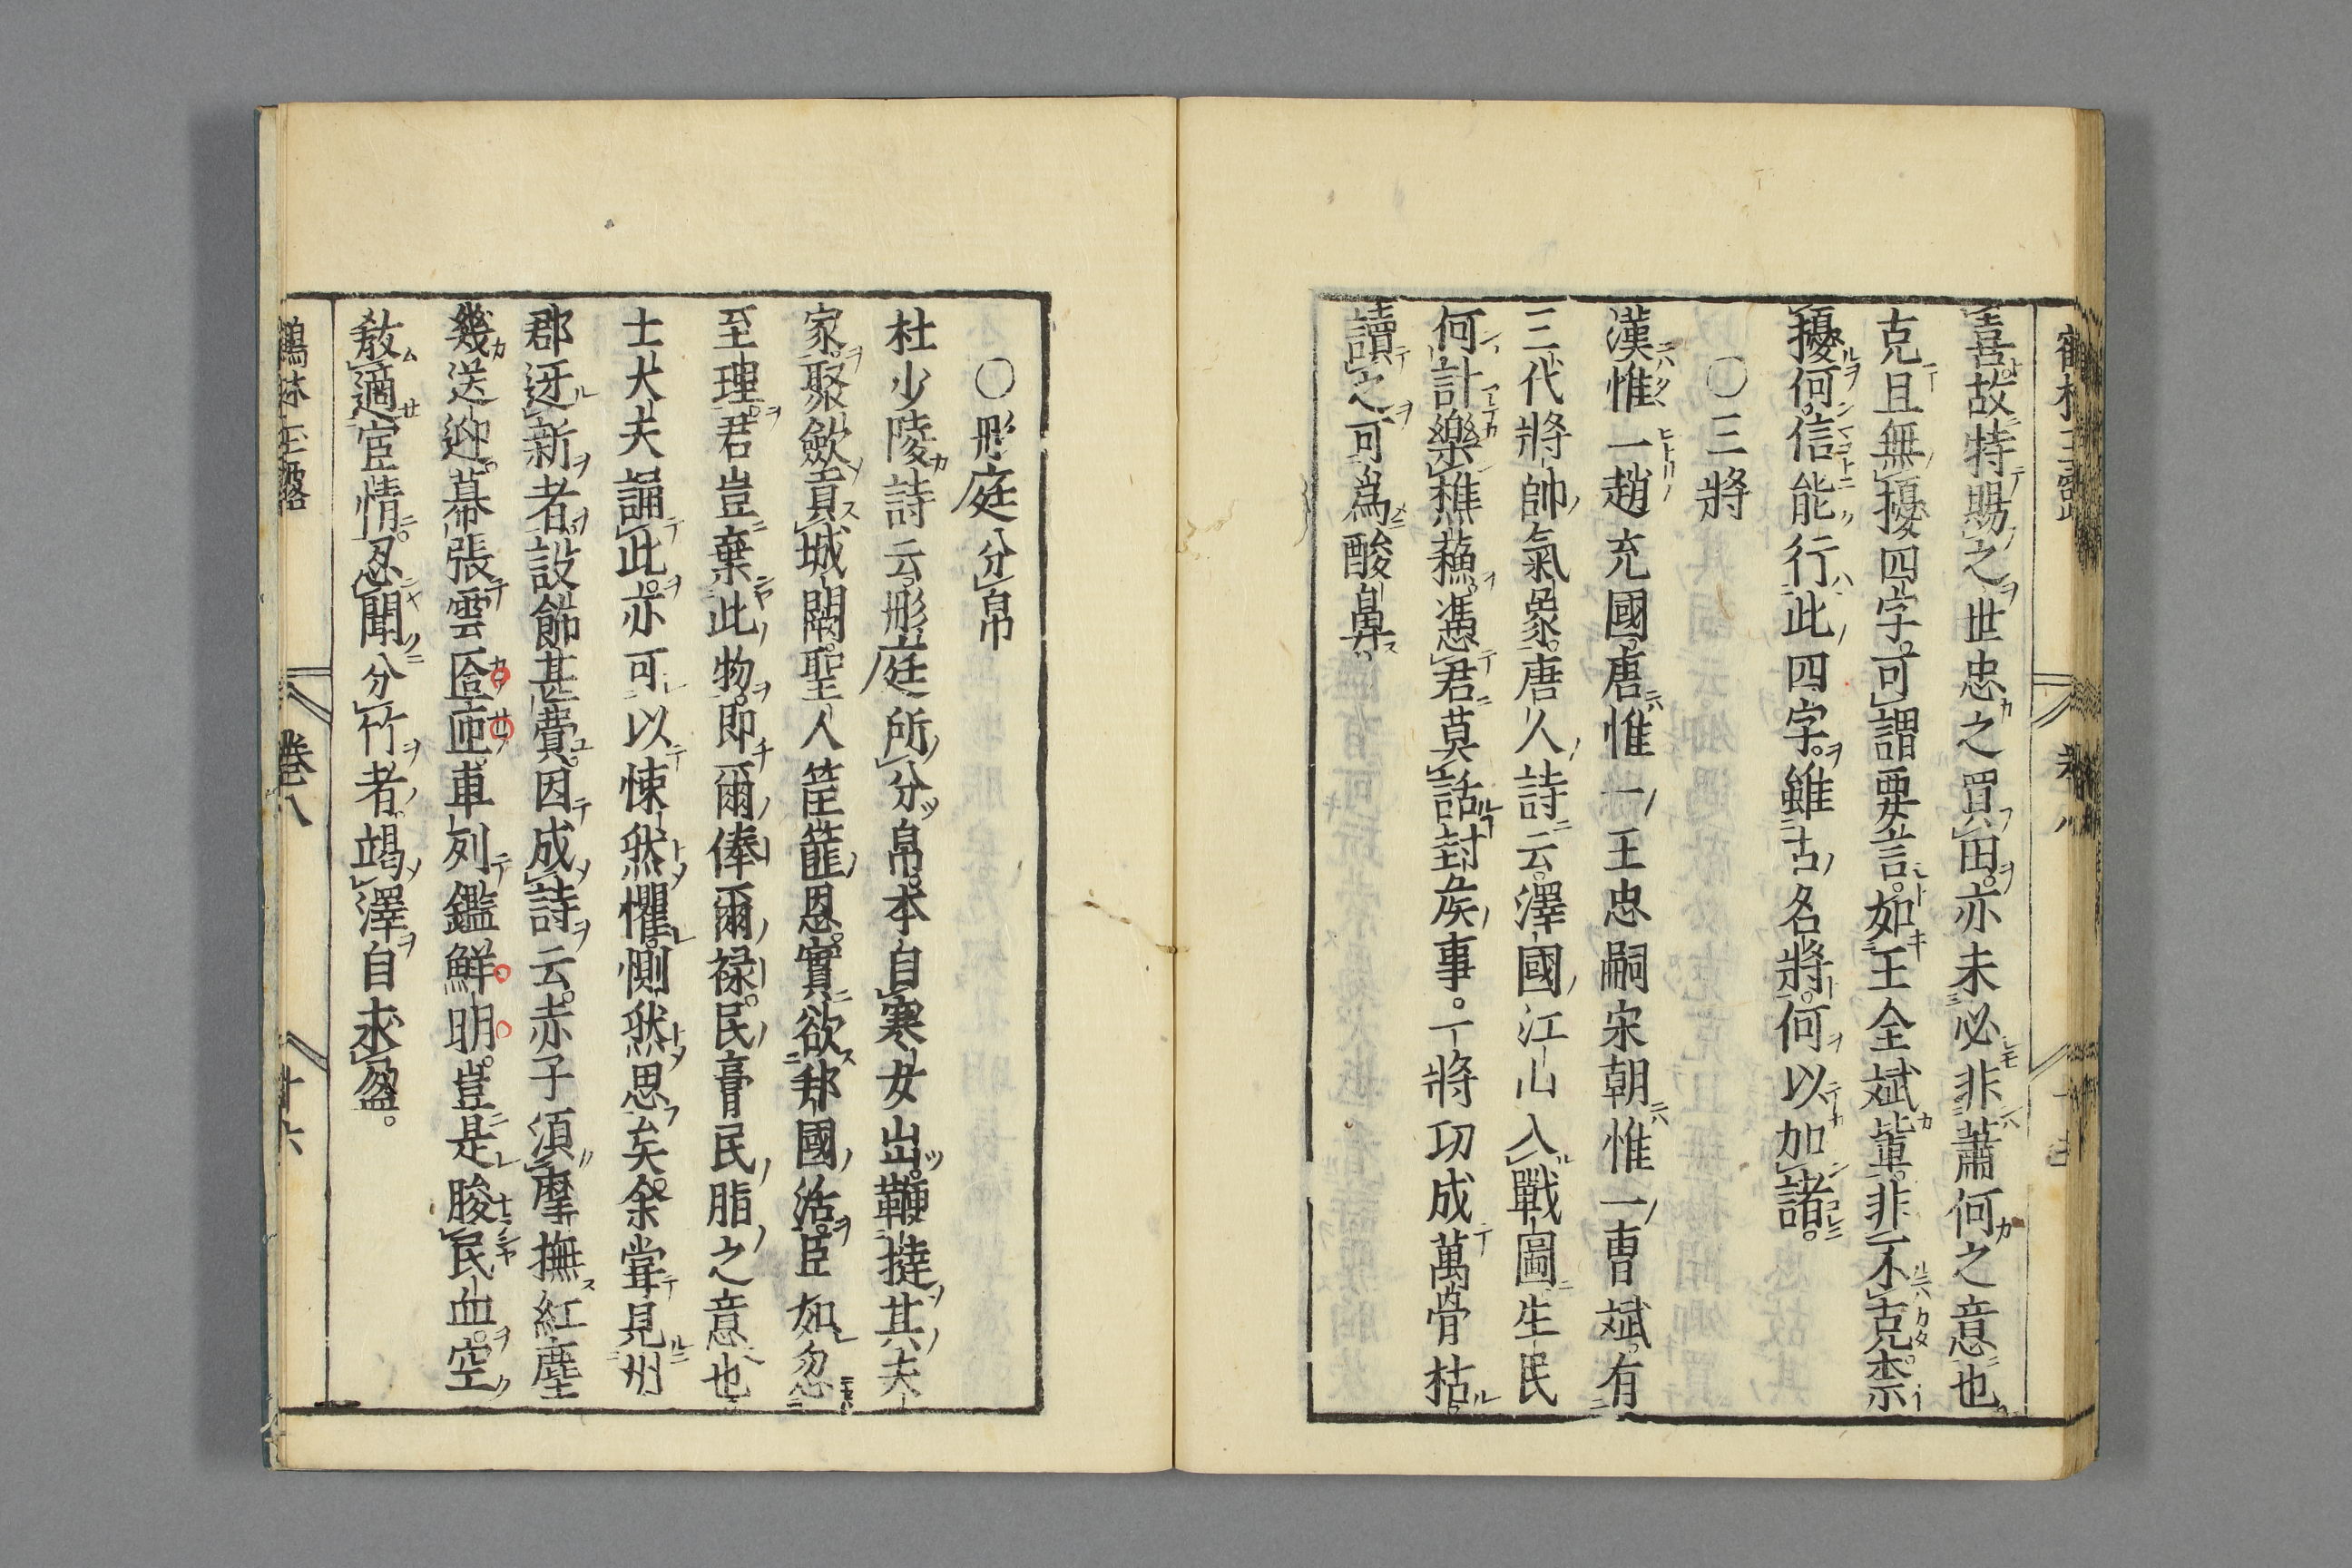 喜故特賜之世忠之買田亦未必非蕭何之意也
克且無擾四字可謂要言如王全斌軰非不克柰
擾何信能行此四字雖古名將何以加諸
〇三將
漢惟一趙充國唐惟一王忠嗣宋朝惟一曺斌有
三代將帥氣象唐人詩云澤國江山入戰圖生民
何計樂樵蘇憑君莫話封矦事一將功成萬骨枯
讀之可爲酸鼻
〇彤庭分帛
杜少陵詩云彤庭所分帛本自寒女出鞭撻其夫
家聚歛貢城闕聖人筐篚恩實欲邦國活臣如忽
至理君豈棄此物即爾俸爾禄民膏民脂之意也
士大夫誦此亦可以悚然懼惻然思矣余甞見州
郡迓新者設飾甚費因成詩云赤子須摩撫紅塵
幾送迎幕張雲匼匝車列鑑鮮明豈是朘民血空
敎適宦情忍聞分竹者竭澤自求盈
卷八
十六